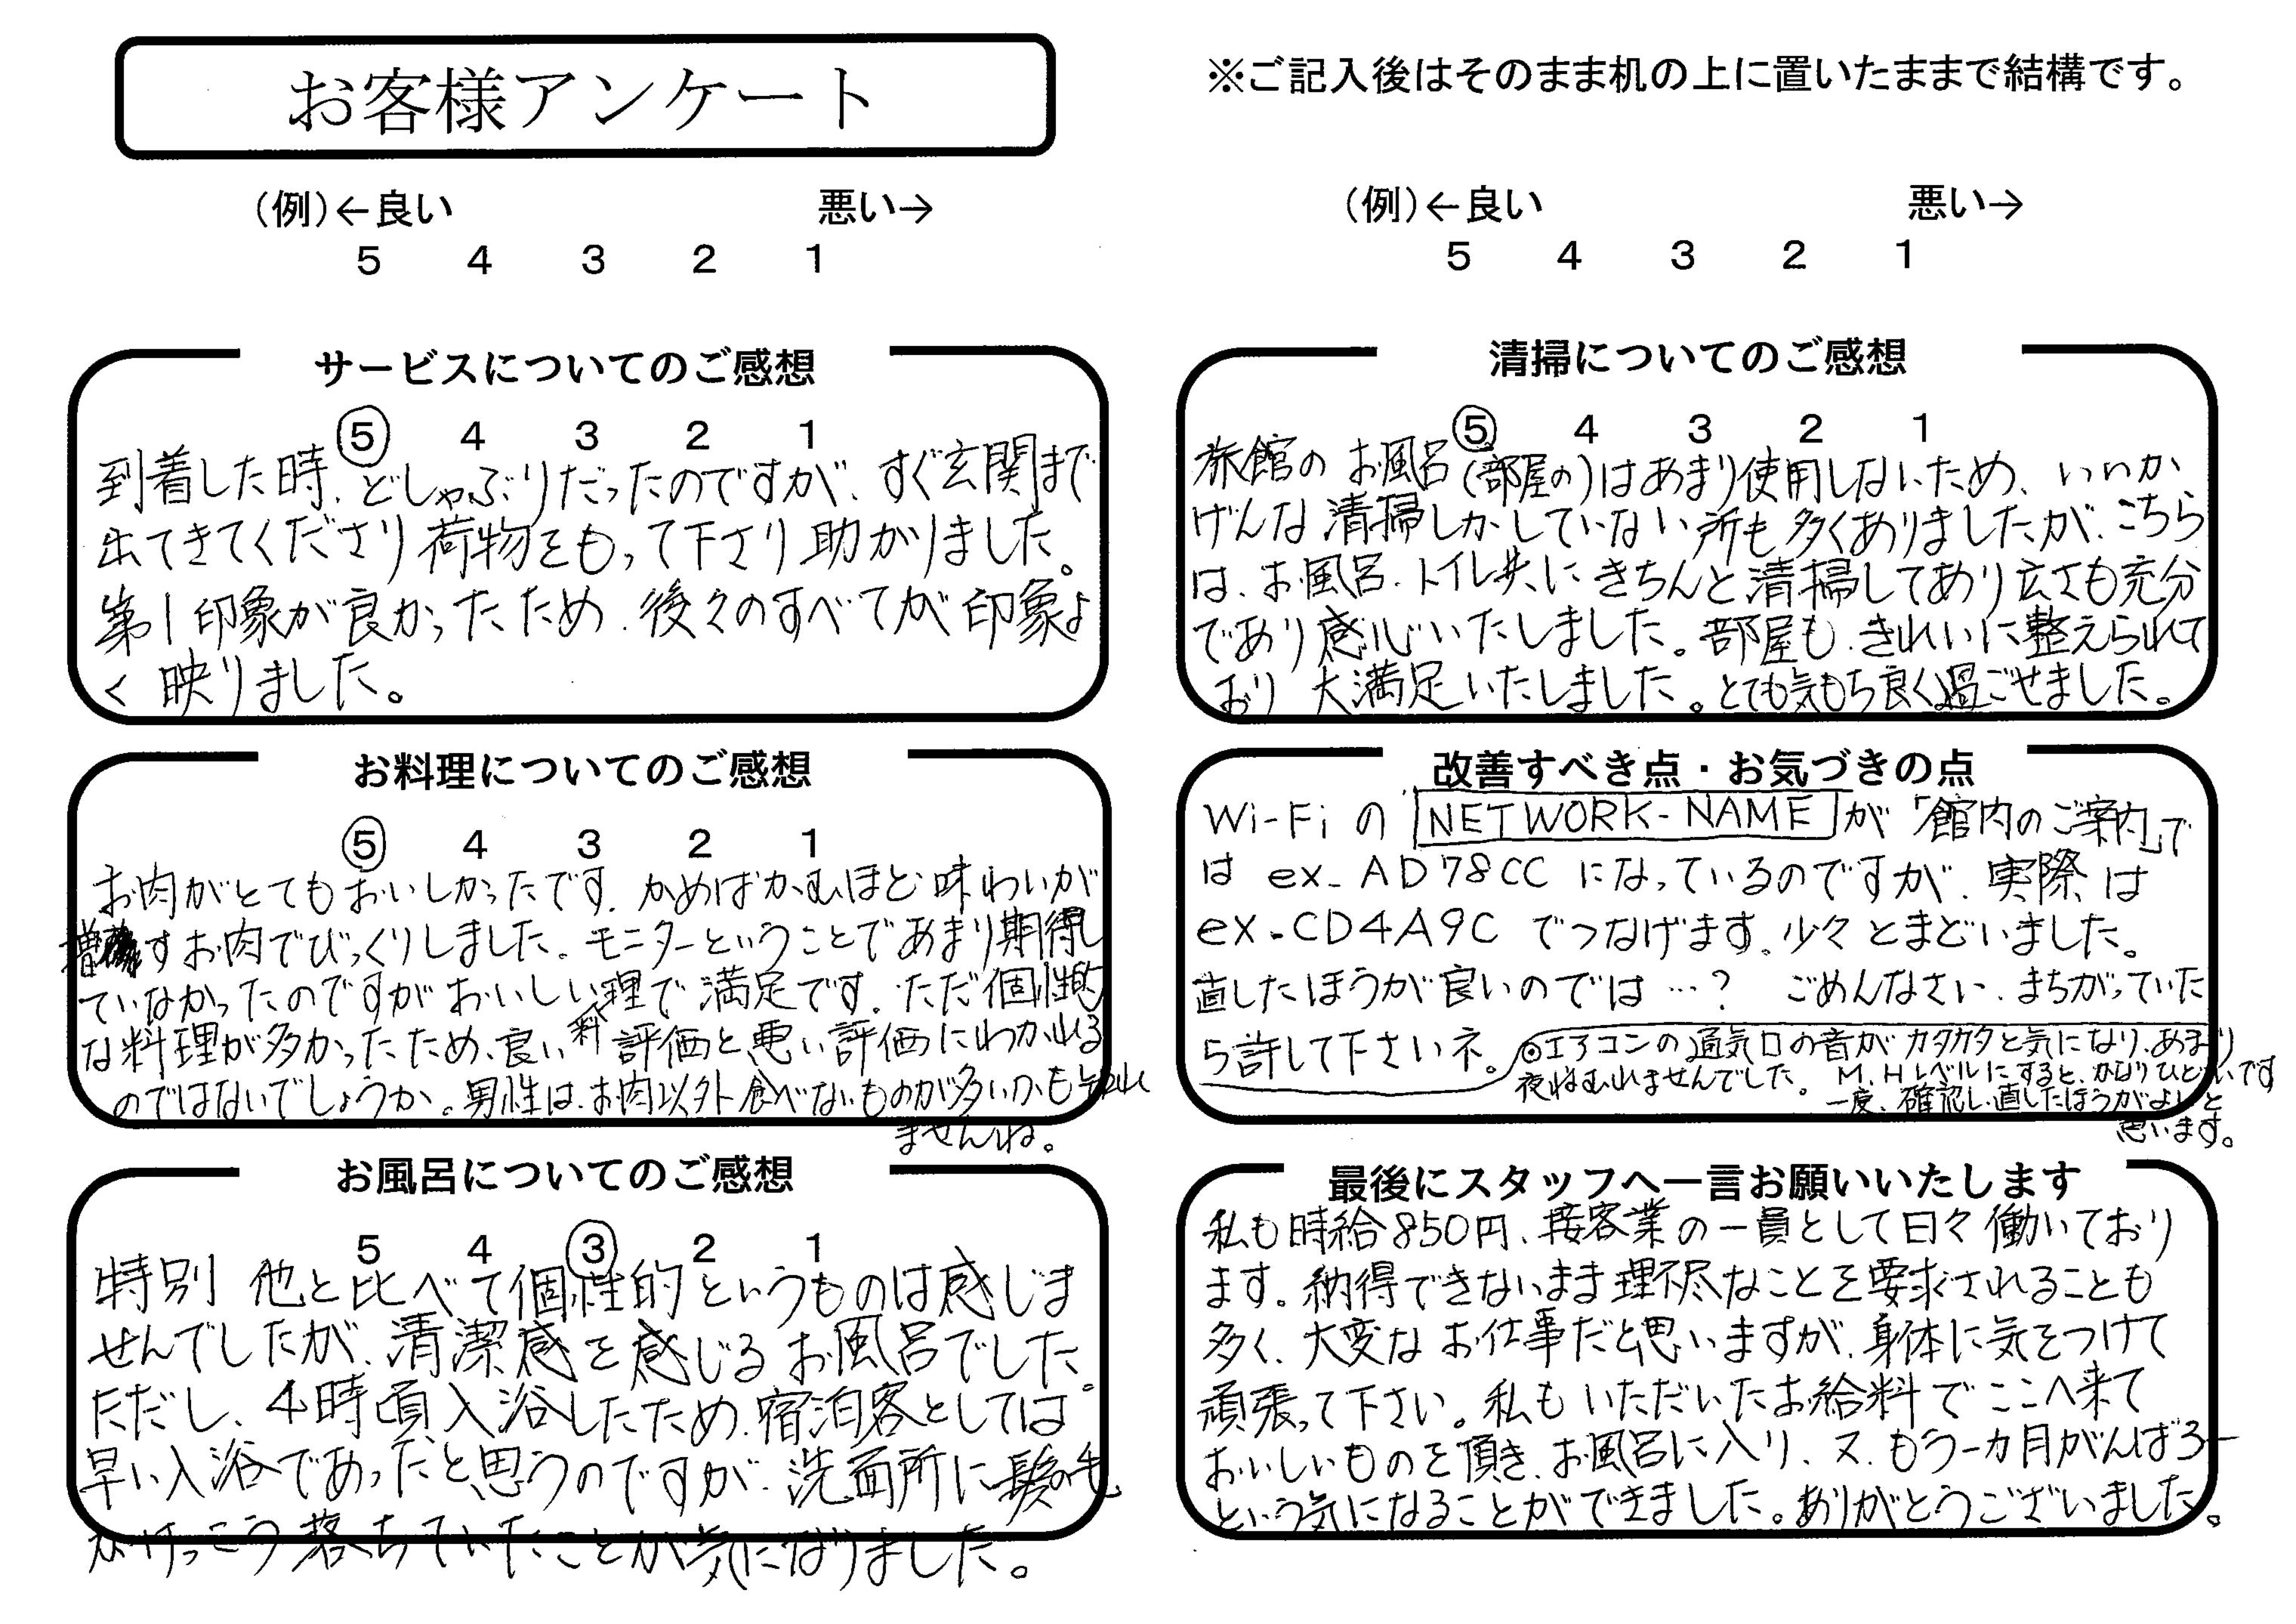 お客様アンケート
※ご記入後はそのまま机の上に置いたままで結構です。
(例)←良い 悪い→
5 4 3 2 1
(例)←良い 悪い→
5 4 3 2 1
サービスについてのご感想
5 4 3 2 1
到着した時、どしゃぶりだったのですが、すぐ玄関まで
出てきてくださり荷物をもって下さり助かりました。
第1印象が良かったため、後々のすべてが印象よ
く映りました。
お料理についてのご感想
5 4 3 2 1
お肉がとてもおいしかったです。かめばかむほど味わいが
増すお肉でびっくりしました。モニターということであまり期待し
ていなかったのですがおいしい料理で満足です。ただ個性的
な料理が多かったため、良い評価と悪い評価にわかれる
のではないでしょうか。男性は、お肉以外食べないものが多いかも知れ
ませんね。
お風呂についてのご感想
5 4 3 2 1
特別 他と比べて個性的というものは感じま
せんでしたが、清潔感を感じるお風呂でした。
ただし、4時頃入浴したため、宿泊客としては
早い入浴であっだと思うのですが、洗面所に髪の毛
がけっこう落ちていたことが気になりました。
清掃についてのご感想
5 4 3 2 1
旅館のお風呂(部屋の)はあまり使用しないため、いいか
げんな清掃しかしていない所も多くありましたが、こちら
は、お風呂、トイレ共にきちんと清掃してあり広さも充分
であり感心いたしました。部屋も、きれいに整えられて
おり 大満足いたしました。とても気もち良く過ごせました。
改善すべき点・お気づきの点
Wi-Fiの NETWORK-NAME が「館内のご案内」で
は ex-AD78CC になっているのですが、実際は
ex-CD4A9C でつなげます。少々とまどいました。
直したほうが良いのでは…? ごめんなさい、まちがっていた
ら許して下さいネ。
◎エアコンの通気口の音がカタカタと気になり、あまり
夜ねむれませんでした。 M、Hレベルにすると、かなりひどいです
一度、確認し直したほうがよいと
思います。
最後にスタッフへ一言お願いいたします
私も時給850円、接客業の一員として日々働いており
ます。納得できないまま理不尽なことを要求されることも
多く、大変なお仕事だと思いますが、身体に気をつけて
頑張って下さい。私もいただいたお給料でここへ来て
おいしいものを頂き、お風呂に入り、又、もう一カ月がんばろー
という気になることができました。ありがとうございました。